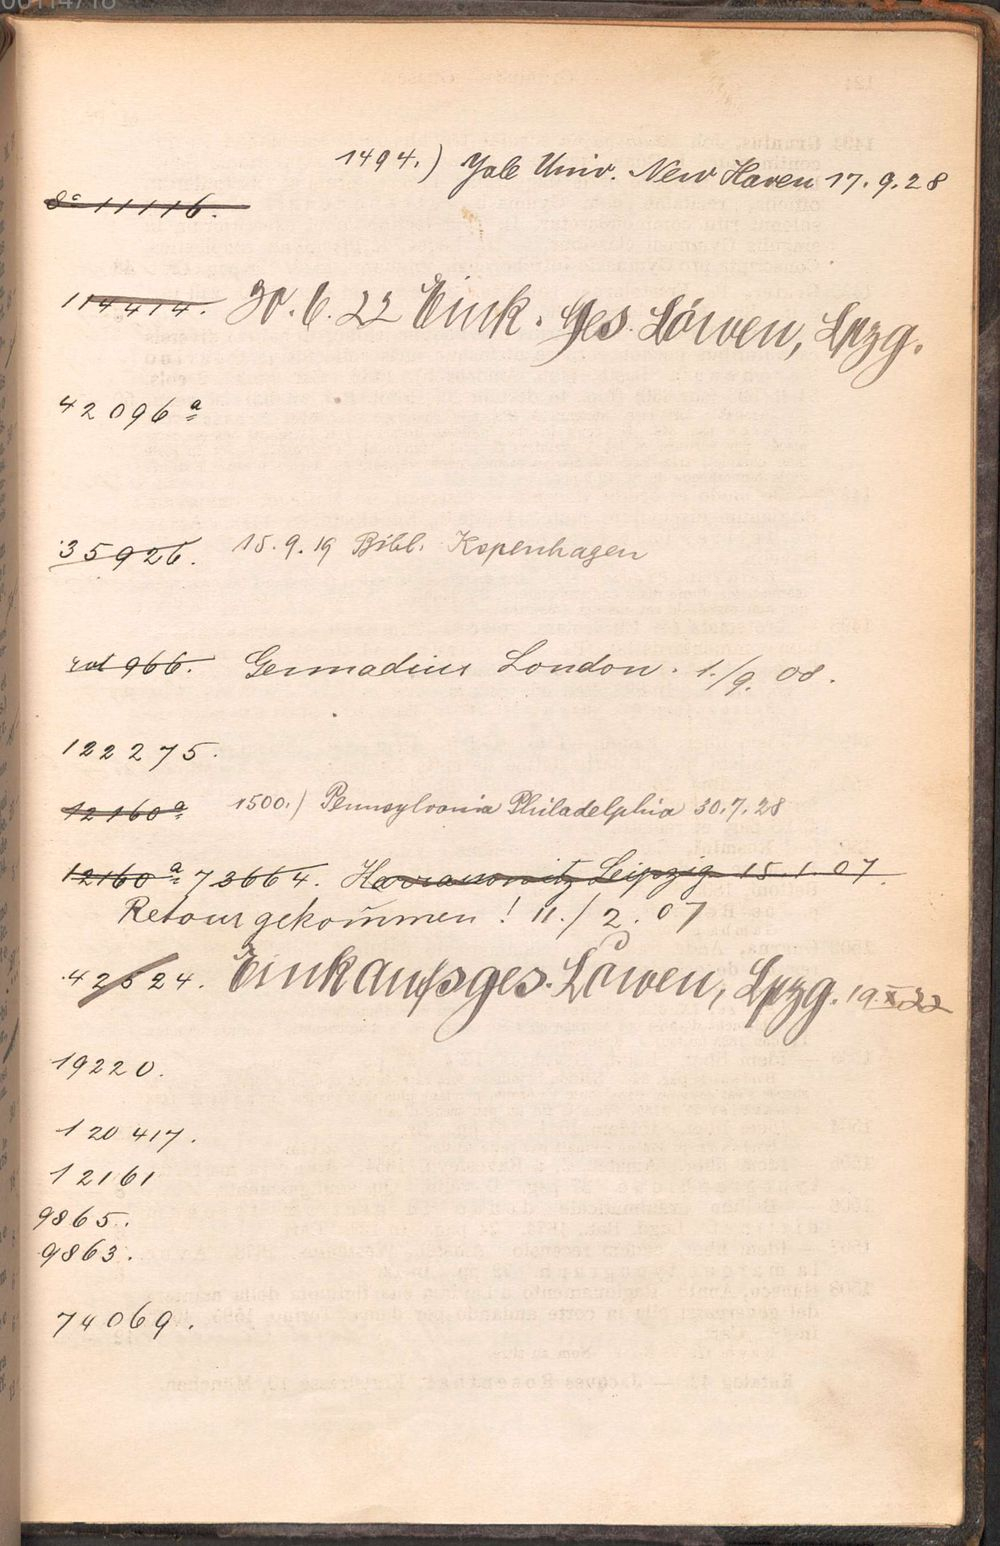 00114718
1494.) Yale Univ. New Haven 17.9.28
8° 11116.
114414. 30.6.22 Eink. Ges. Löwen, Lpzg.
42096a
35926. 15.9.19 Bibl. Kopenhagen
966. Gennadius London. 1./9. 08.
122275.
12160a 1500.) Pennsylvania Philadelphia 30.7.28
12160a 73664. Harrassowitz Leipzig 15.1.07.
Retour gekom̄en! 11./2.07
42524. Einkaufsges. Löwen, Lpzg. 19.X.22
19220.
120417.
12161
9865.
9863.
74069.